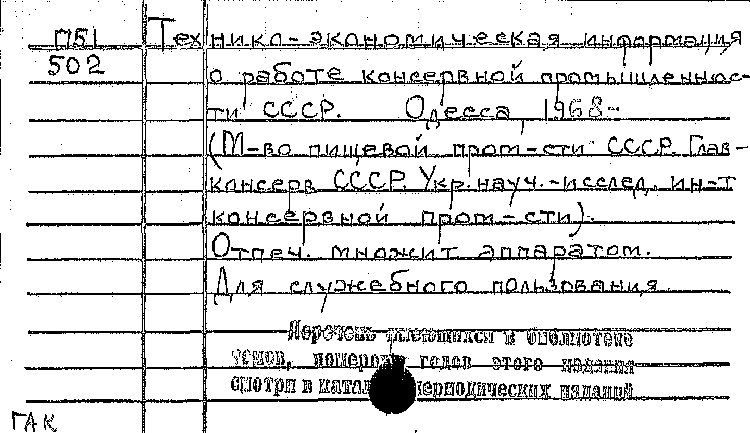 П51
502
Технико-экономическая информация
о работе консервной промышленнос-
ти СССР. Одесса, 1968-
(М-во пищевой пром-сти СССР. Глав-
консерв СССР. Укр. науч.-исслед. ин-т
консервной пром-сти).
Отпеч. множит аппаратом.
Для служебного пользования
Перечень имеющихся в библиотеке
номеров годов этого издания
смотри в периодических изданий
ГАК